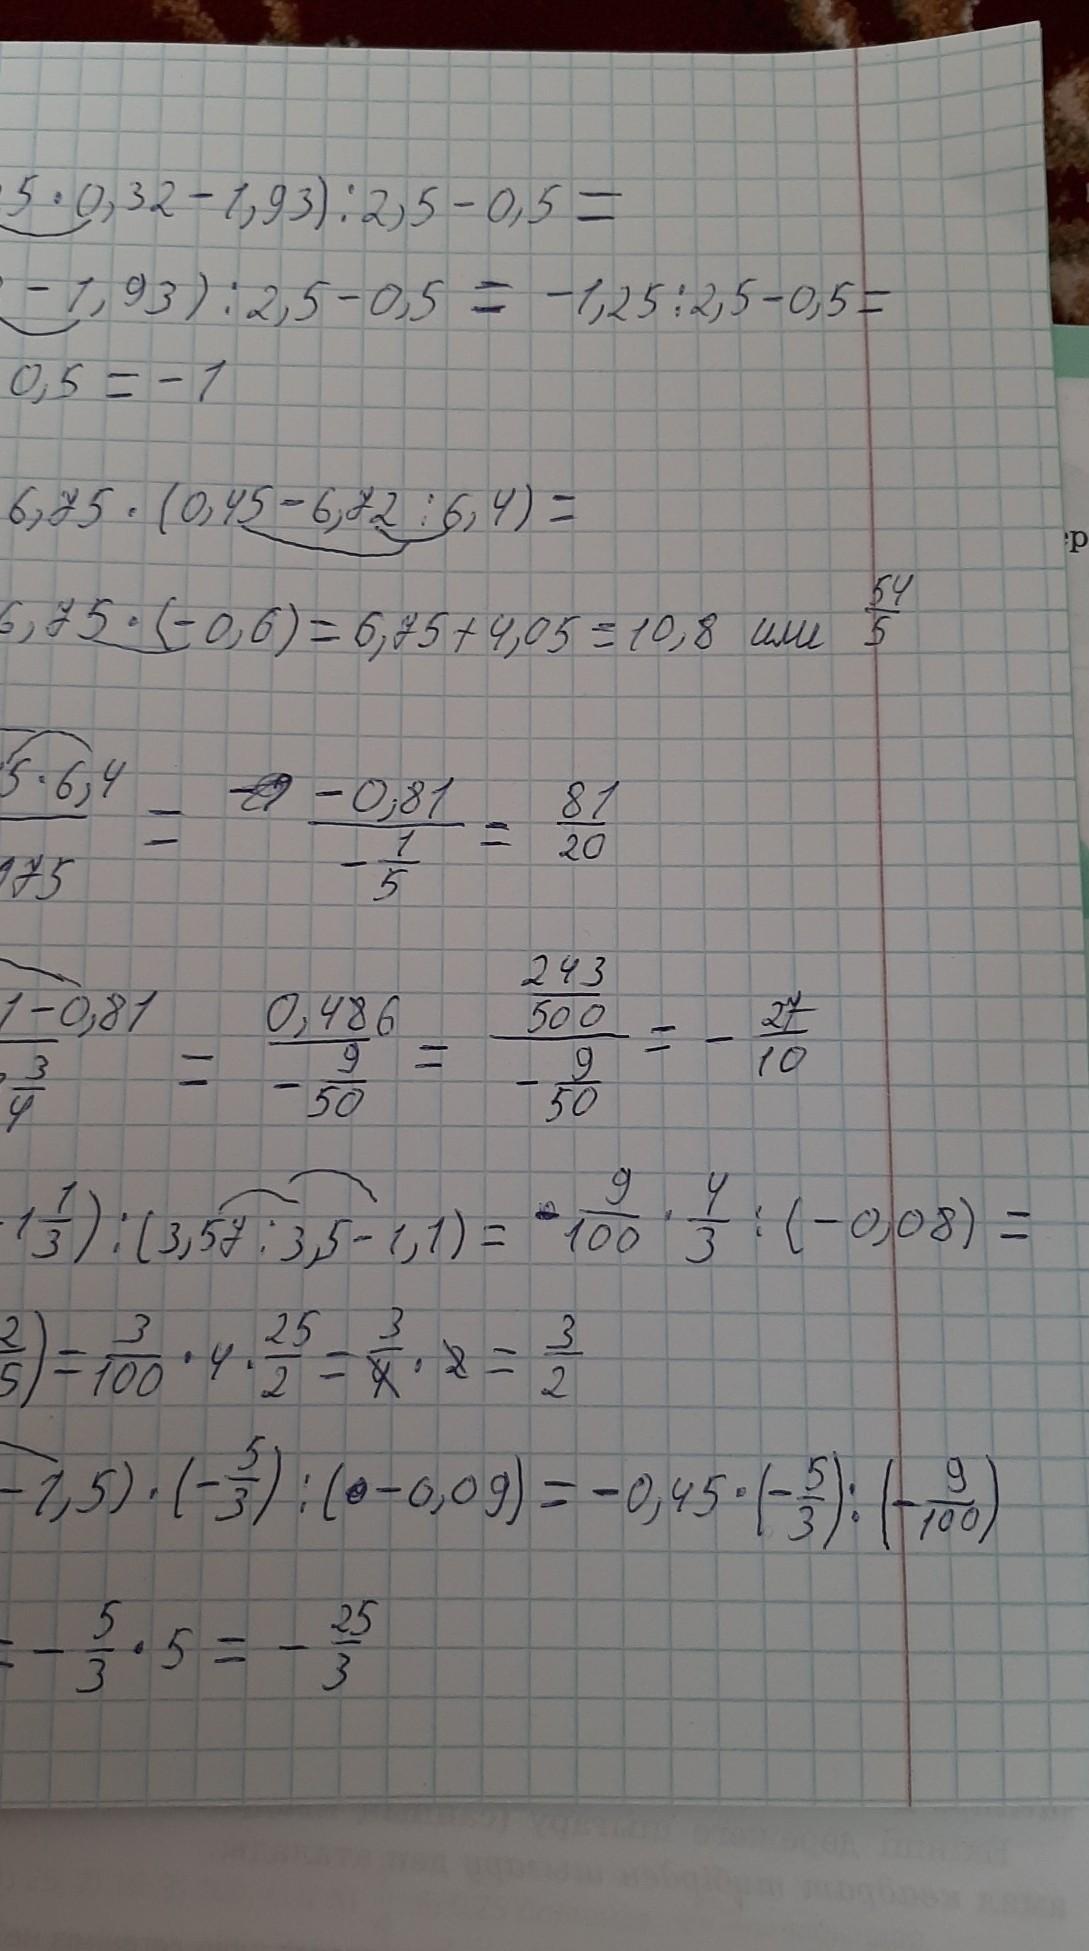 5·0,32-1,93):2,5-0,5=
-1,93):2,5-0,5 = -1,25:2,5-0,5=
0,5=-1
6,75·(0,45-6,72:6,4)=
6,75·(-0,6)=6,75+4,05=10,8 или 54/5
5·6,4/975 = -0,81/-1/5 = 81/20
1-0,81/3/4 = 0,486/-9/50 = 243/500/-9/50 = -27/10
1 1/3):(3,57:3,5-1,1)= -9/100·4/3:(-0,08)=
2/5)=3/100·4·25/2=3/4·2=3/2
-1,5)·(-5/3):(-0,09)=-0,45·(-5/3):(-9/100)
=-5/3·5=-25/3
ер